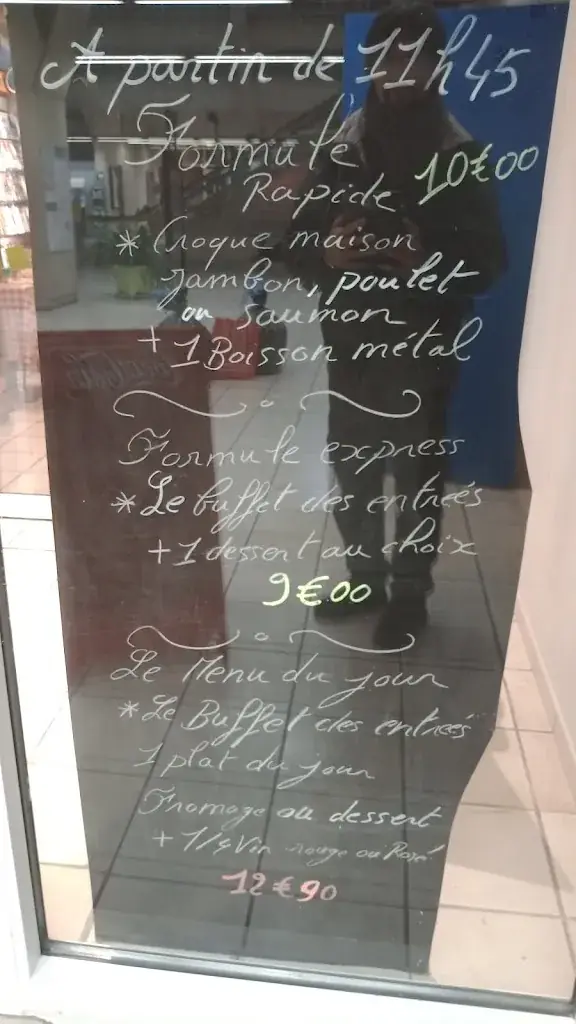 A partir de 11h45
Formule
Rapide 10€00
* Croque maison
Jambon, poulet
ou saumon
+ 1 Boisson métal
Formule express
* Le buffet des entrées
+ 1 dessert au choix
9€00
Le Menu du jour
* Le Buffet des entrées
1 plat du jour
Fromage ou dessert
+ 1/4 Vin rouge ou Rosé
12€90